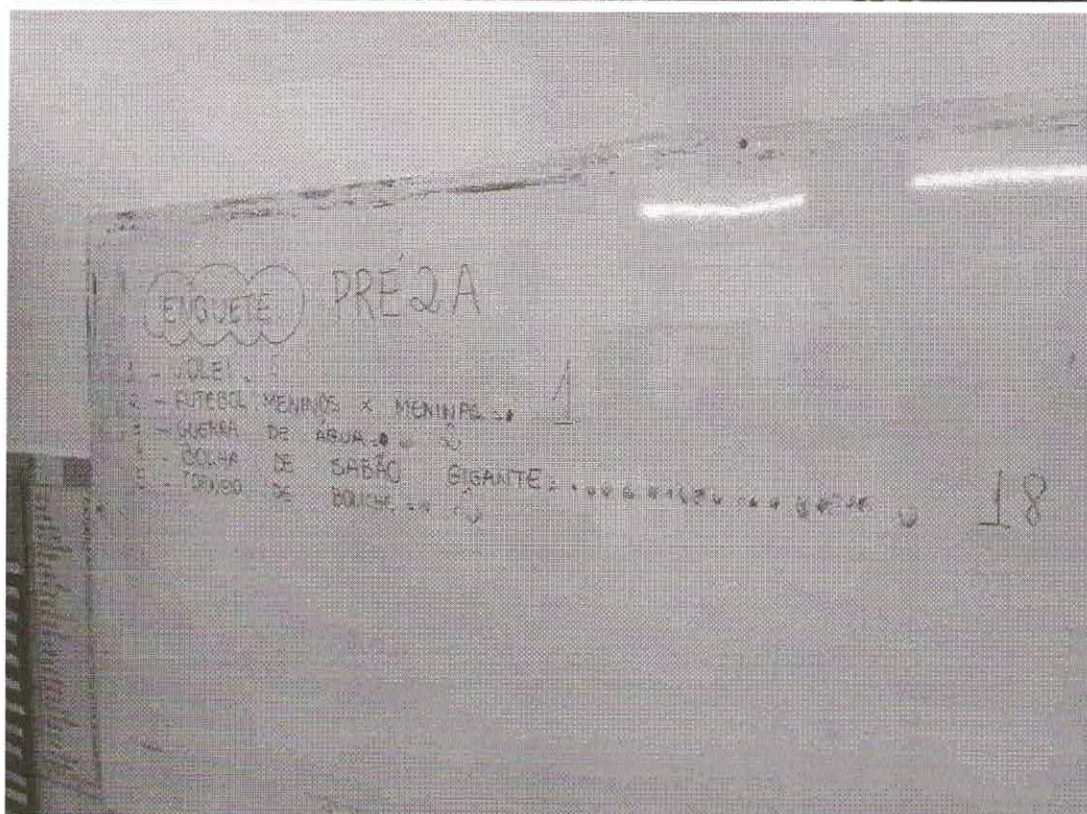 ENQUETE PRÉ 2A
1 - VÔLEI
2 - FUTEBOL MENINOS X MENINAS 1
3 - GUERRA DE ÁGUA
- BOLHA DE SABÃO GIGANTE 18
- TORNEIO DE BOLICHE